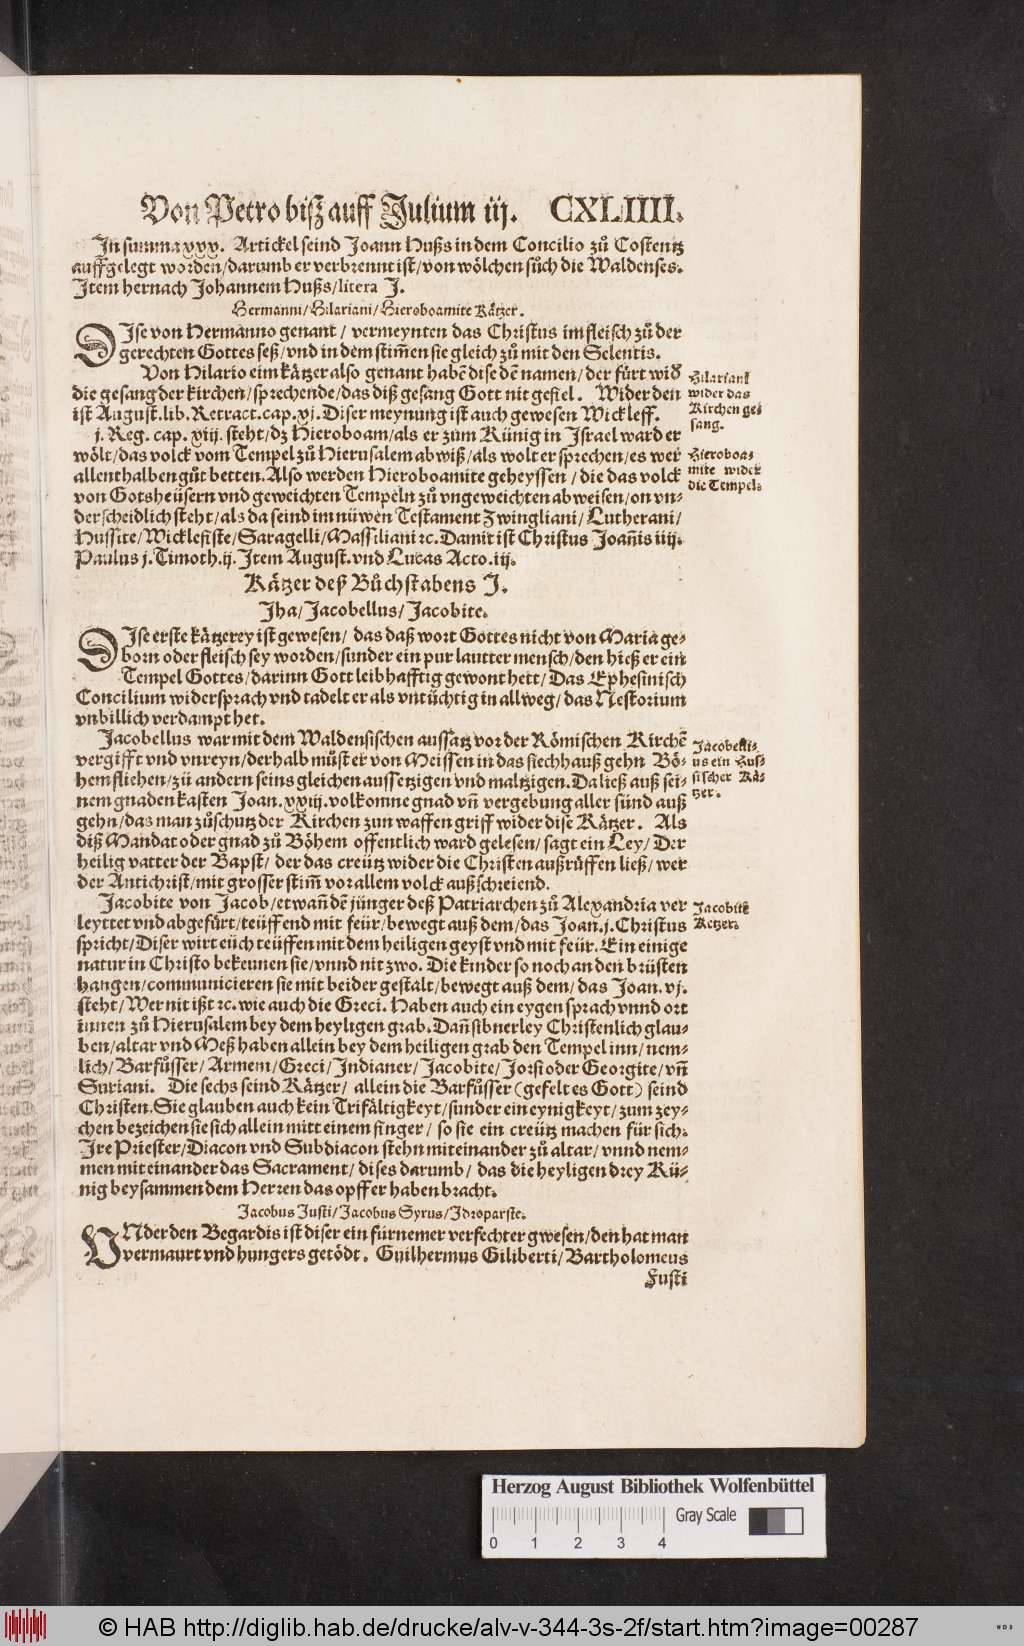 Von Petro biß auff Julium iij. CXLIIII.
In summa xxx. Artickel seind Joann Hußs in dem Concilio zů Costentz
auffgelegt worden/darumb er verbrennt ist/von wölchen sůch die Waldenses.
Item hernach Johannem Hußs/litera J.
Hermanni/Hilariani/Hieroboamite Kätzer.
DIse von Hermanno genant/ vermeynten das Christus im fleisch zů der
gerechten Gottes seß/vnd in dem stim̃en sie gleich zů mit den Selentis.
Von Hilario eim kätzer also genant habẽ dise dẽ namen/der fürt wið
die gesang der kirchen/sprechende/das diß gesang Gott nit gefiel. Wider den
ist August.lib.Retract.cap.xj. Diser meynung ist auch gewesen Wickleff.
Hilariani
wider das
Kirchen ge-
sang.
j. Reg. cap. xiij. steht/dz Hieroboam/als er zum Künig in Israel ward er
wölt/das volck vom Tempel zů Hierusalem abwiß/als wolt er sprechen/es wer
allenthalben gůt betten. Also werden Hieroboamite geheyssen/ die das volck
von Gotsheüsern vnd geweichten Tempeln zů vngeweichten abweisen/on vn-
derscheidlich steht/als da seind im nüwen Testament Zwingliani/Lutherani/
Hussite/Wicklefiste/Saragelli/Massiliani ꝛc. Damit ist Christus Joañis iiij.
Paulus j.Timoth.ij. Item August.vnd Lucas Acto.iij.
Hieroboa-
mite wider
die Tempel.
Kätzer deß Bůchstabens J.
Iha/Jacobellus/Jacobite.
DIse erste kätzerey ist gewesen/ das daß wort Gottes nicht von Maria ge-
born oder fleisch sey worden/sunder ein pur lautter mensch/den hieß er ein
Tempel Gottes/darinn Gott leibhafftig gewont hett/Das Ephesinisch
Concilium widersprach vnd tadelt er als vntüchtig in allweg/das Nestorium
vnbillich verdampt het.
Jacobellus war mit dem Waldensischen aussatz vor der Römischen Kirchẽ
vergifft vnd vnreyn/derhalb můst er von Meissen in das siechhauß gehn Bö-
hem fliehen/zü andern seins gleichen aussetzigen vnd maltzigen. Da ließ auß sei-
nem gnaden kasten Joan.xxiij.volkomne gnad vñ vergebung aller sünd auß
gehn/das man zů schutz der Kirchen zun waffen griff wider dise Kätzer. Als
diß Mandat oder gnad zů Böhem offentlich ward gelesen/sagt ein Ley/Der
heilig vatter der Bapst/ der das creütz wider die Christen außrüffen ließ/wer
der Antichrist/mit grosser stim̃ vor allem volck außschreiend.
Jacobelli-
us ein Hus-
sischer Kä-
tzer.
Jacobite von Jacob/etwañ dẽ jünger deß Patriarchen zů Alexandria ver
leyttet vnd abgefürt/teüffend mit feür/bewegt auß dem/das Joan.j.Christus
spricht/Diser wirt eüch teüffen mit dem heiligen geyst vnd mit feür. Ein einige
natur in Christo bekennen sie/vnnd nit zwo. Die kinder so noch an den brüsten
hangen/communicieren sie mit beider gestalt/bewegt auß dem/das Joan.vj.
steht/Wer nit ißt ꝛc. wie auch die Greci. Haben auch ein eygen sprach vnnd ort
innen zů Hierusalem bey dem heyligen grab. Dañ sibnerley Christenlich glau-
ben/altar vnd Meß haben allein bey dem heiligen grab den Tempel inn/nem-
lich/Barfüsser/Armeni/Greci/Indianer/Jacobite/Jorsi oder Georgite/vñ
Suriani. Die sechs seind Kätzer/ allein die Barfüsser (gefelt es Gott) seind
Christen. Sie glauben auch kein Trifältigkeyt/sunder ein eynigkeyt/zum zey-
chen bezeichen sie sich allein mitt einem finger/ so sie ein creütz machen für sich.
Ire Priester/Diacon vnd Subdiacon stehn miteinander zů altar/vnnd nem-
men miteinander das Sacrament/dises darumb/ das die heyligen drey Kü-
nig beysammen dem Herren das opffer haben bracht.
Jacobite
Ketzer.
Jacobus Justi/Jacobus Syrus/Idroparste.
VNder den Begardis ist diser ein fürnemer verfechter gwesen/den hat man
vermaurt vnd hungers getödt. Guilhermus Giliberti/Bartholomeus
Fusti
Herzog August Bibliothek Wolfenbüttel
Gray Scale
0 1 2 3 4
© HAB http://diglib.hab.de/drucke/alv-v-344-3s-2f/start.htm?image=00287